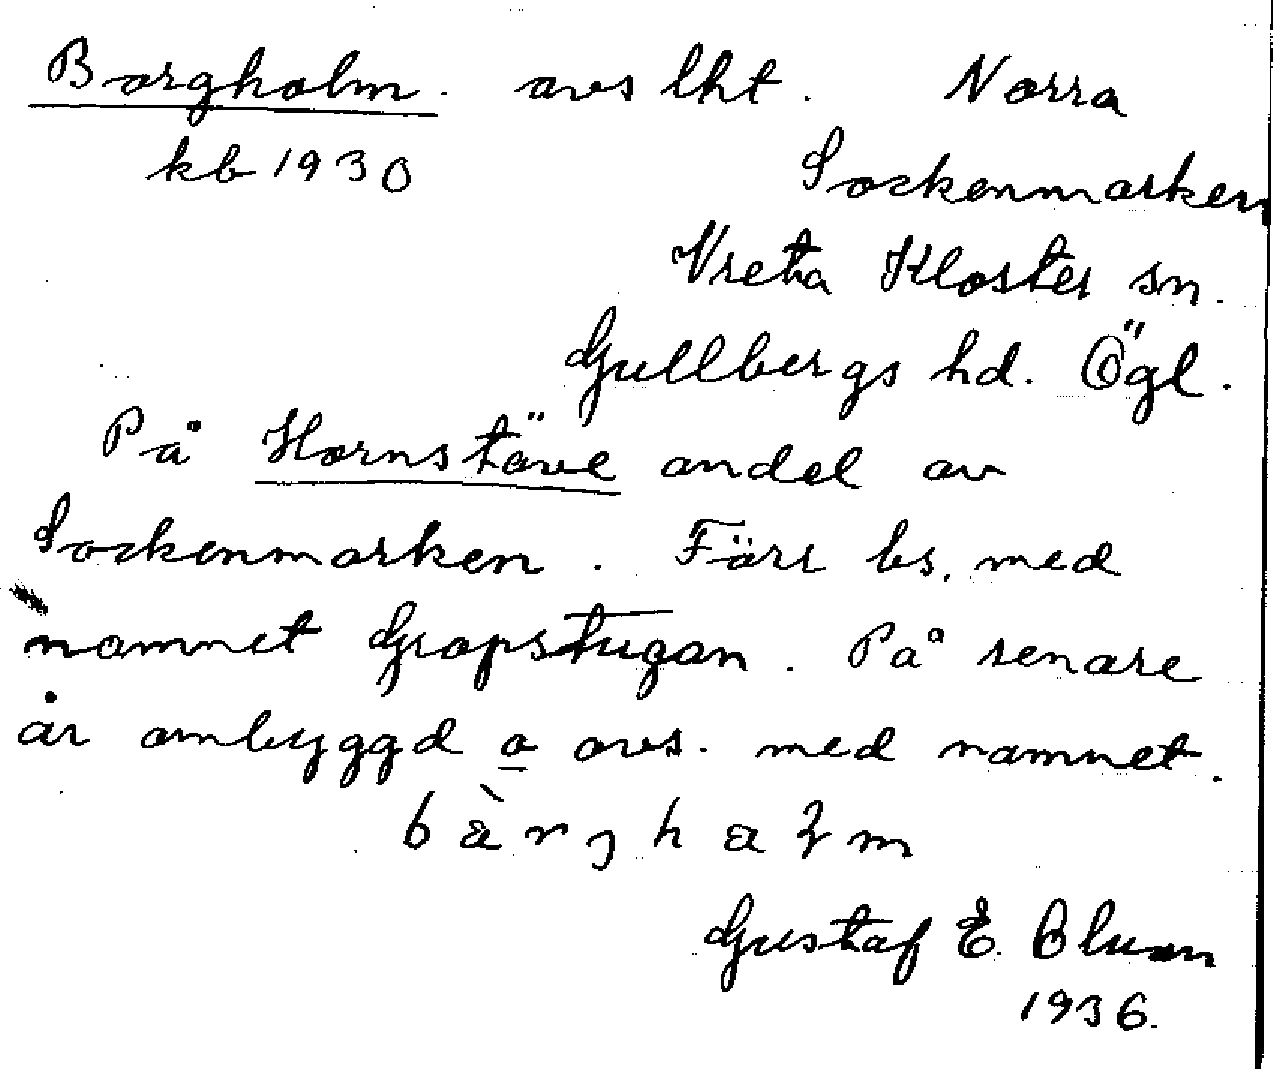 Borgholm. avs lht. Norra
kb 1930 Sockenmarken
Vreta Kloster sn.
Gullbergs hd. Ögl.
På Hornstäve andel av
Sockenmarken. Förr bs. med
namnet Gropstugan. På senare
år ombyggd o avs. med namnet.
Gustaf E. Blum
1936.